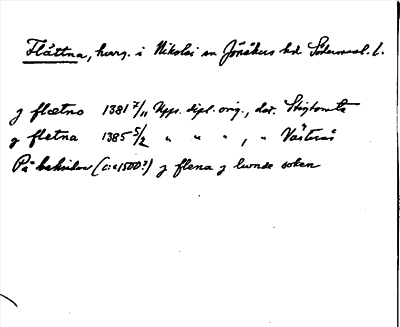 Flättna, herrg. i Nikolai sn Jönåkers hd Södermanl. l.
y flætno 1381 7/11 Upps. dipl. orig., dat. Stigtomta
y fletna 1385 5/2 " " " , " Västerås
På baksidan (c:a 1500?) y flena y lunde soken